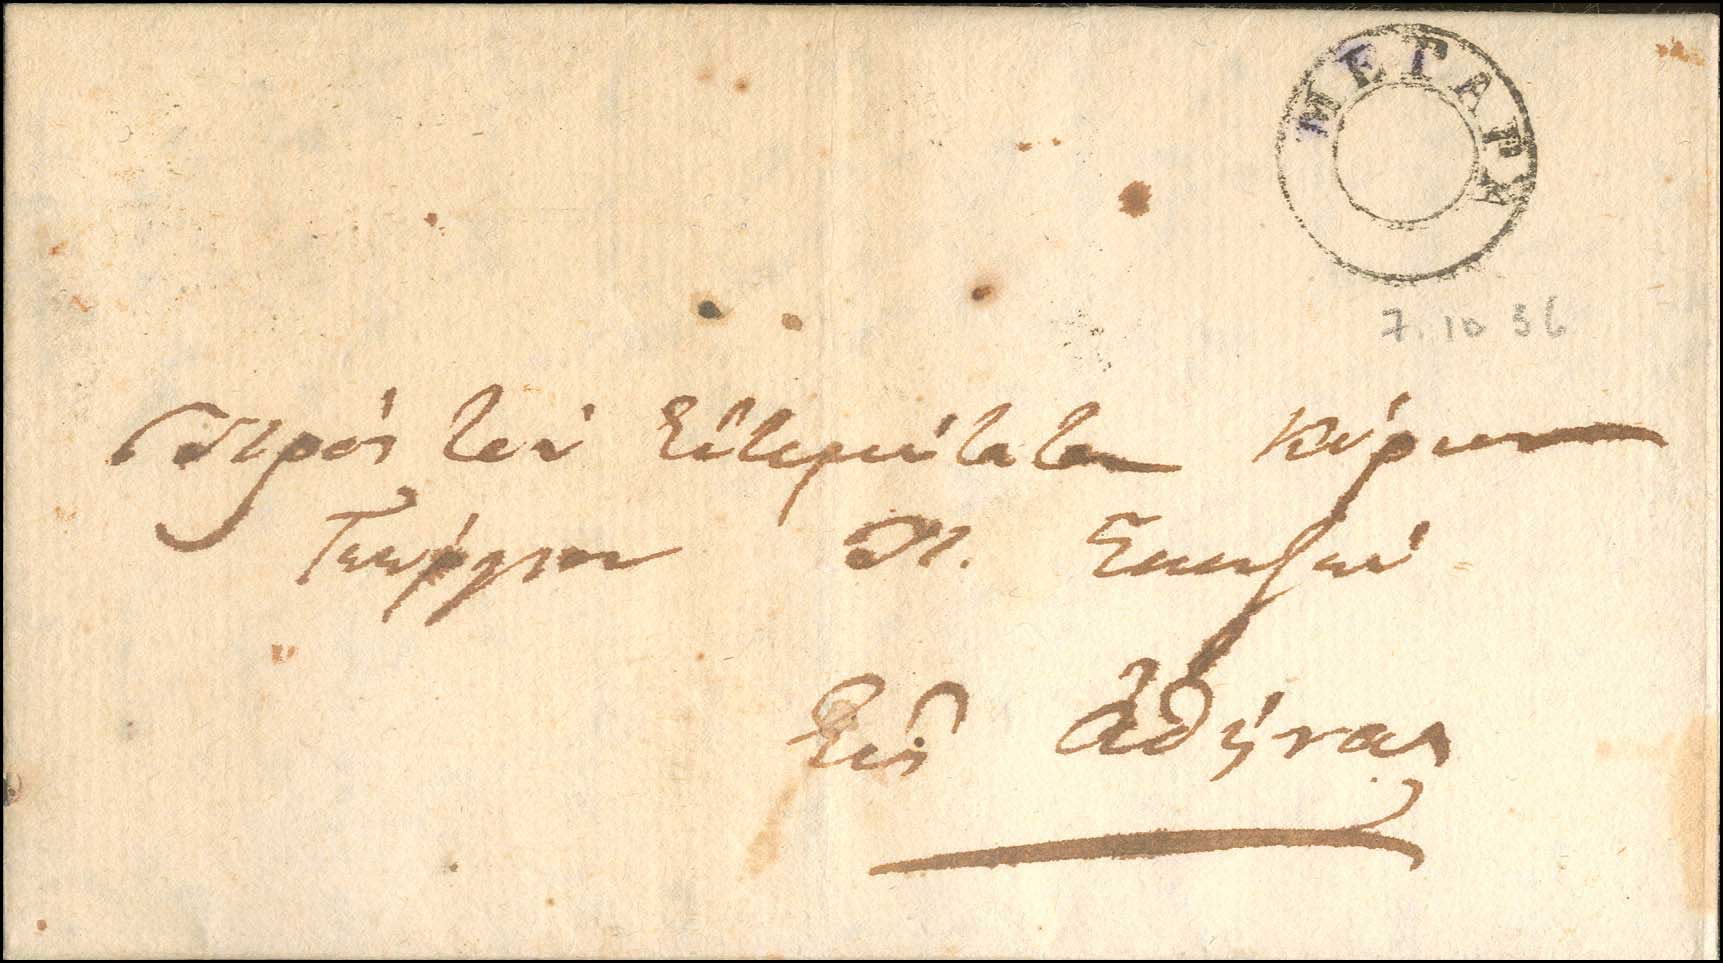 ΜΕΓΑΡΑ
7.10 36
Πρὸς τὸν Εὐτιμώτατον Κύριον
Γεώργιον Π. Σκουζέν
Εἰς Ἀθήνας